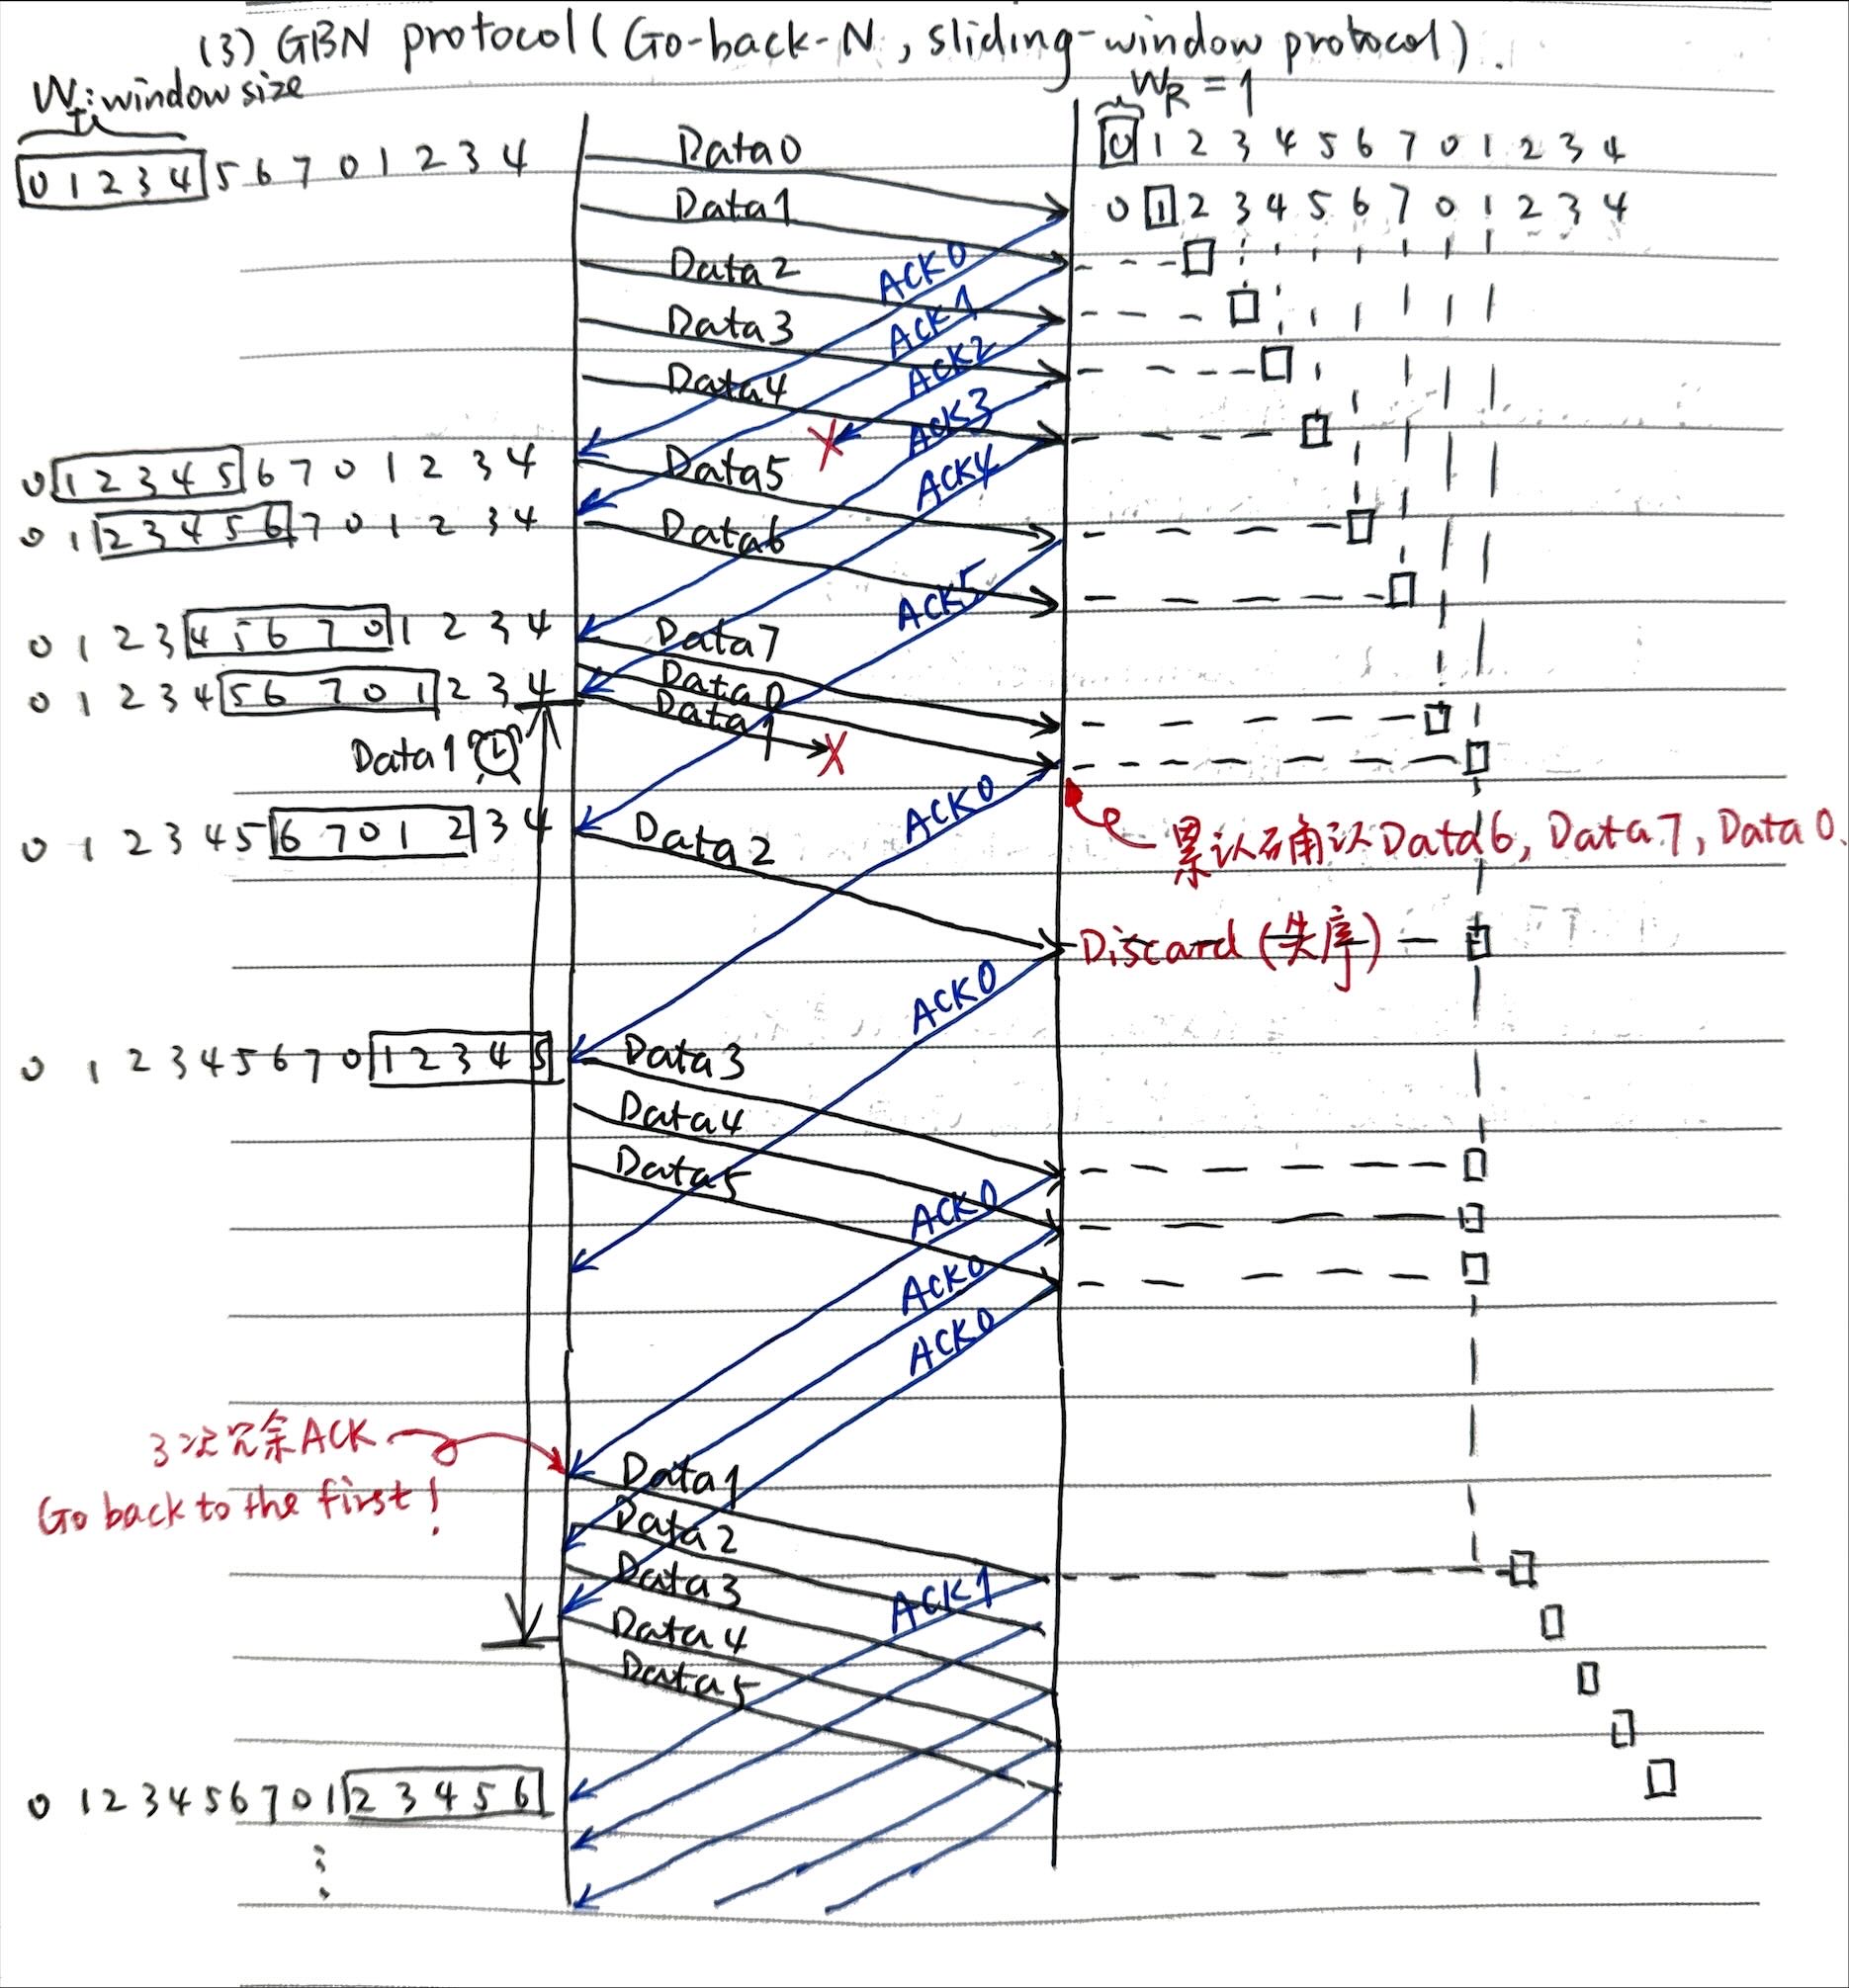 (3) GBN protocol (Go-back-N, sliding-window protocol).
W_T: window size
W_R = 1
0 1 2 3 4 5 6 7 0 1 2 3 4
Data0
0 1 2 3 4 5 6 7 0 1 2 3 4
Data1
0 1 2 3 4 5 6 7 0 1 2 3 4
Data2
ACK0
Data3
ACK1
Data4
ACK2
ACK3
0 1 2 3 4 5 6 7 0 1 2 3 4
Data5
ACK4
0 1 2 3 4 5 6 7 0 1 2 3 4
Data6
ACK5
0 1 2 3 4 5 6 7 0 1 2 3 4
Data7
0 1 2 3 4 5 6 7 0 1 2 3 4
Data0
Data1
Data1
ACK0
0 1 2 3 4 5 6 7 0 1 2 3 4
Data2
确认Data6, Data7, Data0.
Discard (失序)
ACK0
0 1 2 3 4 5 6 7 0 1 2 3 4 5
Data3
Data4
Data5
ACK0
ACK0
ACK0
3次冗余ACK
Data1
Go back to the first!
Data2
Data3
ACK1
Data4
Data5
0 1 2 3 4 5 6 7 0 1 2 3 4 5 6